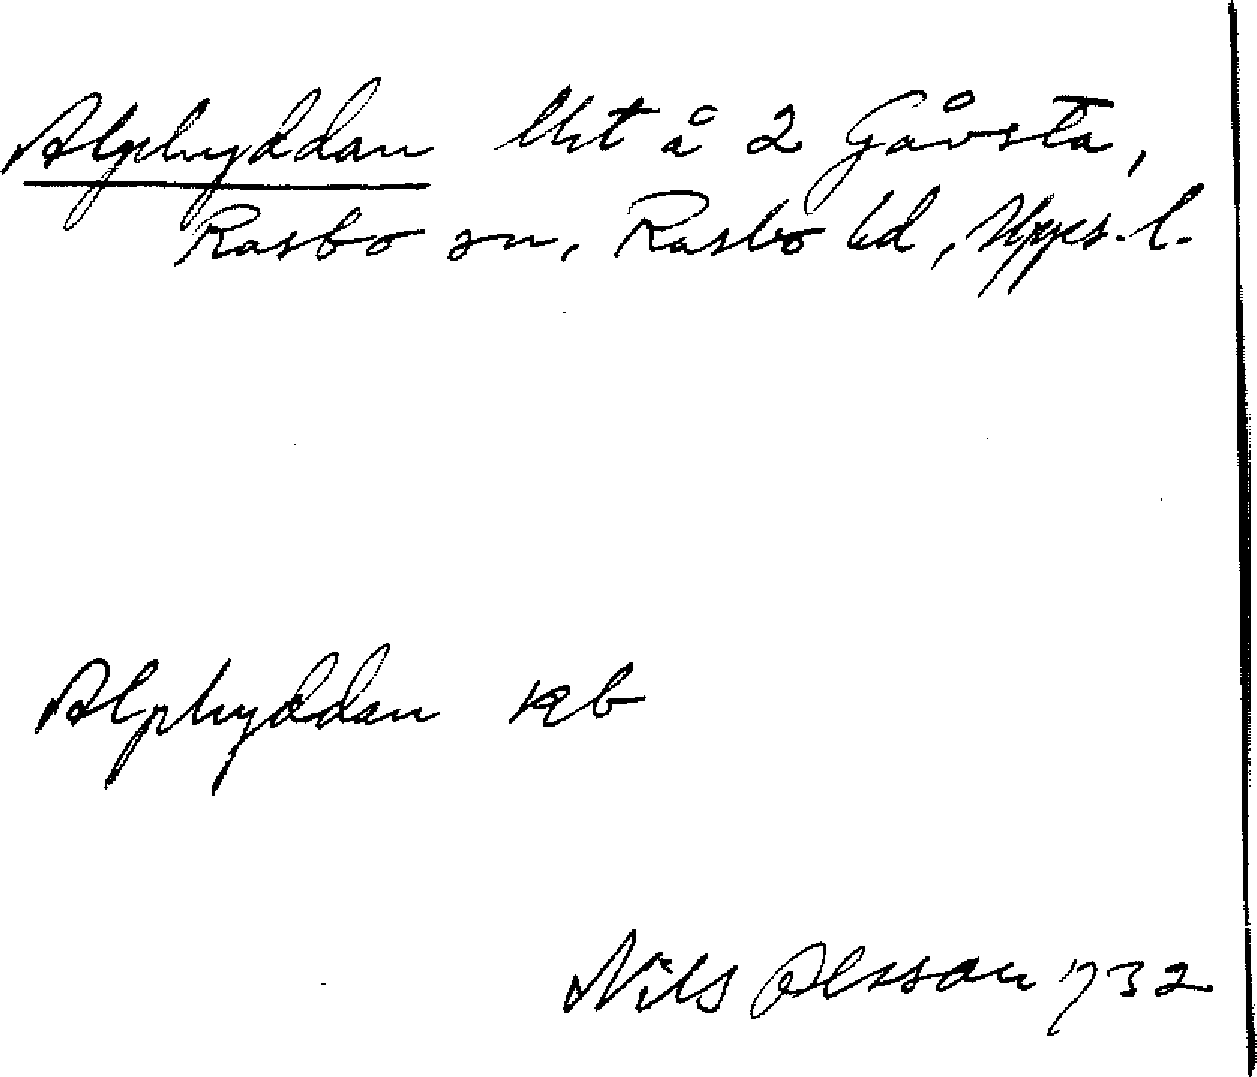 Alphyddan lht å 2 Gåvsta,
Rasbo sn, Rasbo hd, Upps. l.
Alphyddan kb
Nils Olsson 1932